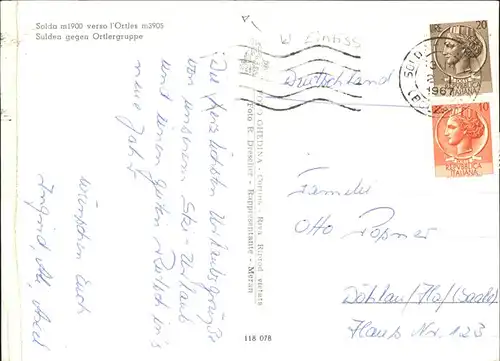 Solda m1900 verso l'Ortles m3905
Sulden gegen Ortlergruppe
Die herzlichsten Urlaubsgrüße
von unserem Ski-Urlaub
und einen guten Rutsch in's
neue Jahr
wünschen Euch
Ingrid, Axel
FOTO GHEDINA - Cortina - Riva Riprod. vietata
Foto E. Drescher - Rappresentante - Meran
118 078
Deutschland
SOLDA
1967
20
ITALIANA
10
REPUBBLICA
ITALIANA
Familie
Otto Popner
Döhlau/Hof (Saale)
Haus Nr. 123